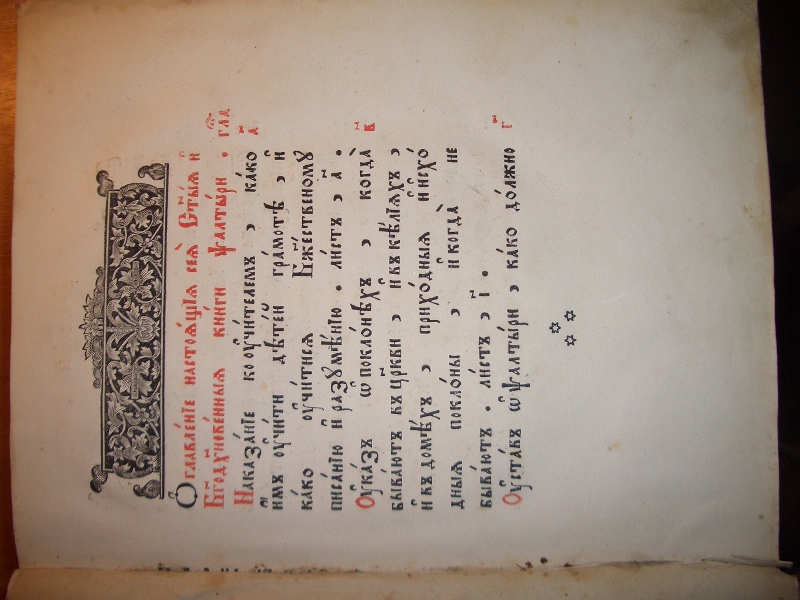 Ѻ҆главле́нїе настоѧ́щїѧ сеѧ̀ ст҃ы́ѧ и҆
Бг҃одꙋхнове́нныѧ кни́ги ѱалты́ри . гла
Наказа́нїе ко ᲂу҆чи́телемъ , ка́ко а҃
и҆́мъ ᲂу҆чи́ти дѣте́й гра́мотѣ , и҆
ка́ко ᲂу҆чи́тисѧ Бж҃е́ственомꙋ
писа́нїю и҆ разꙋмѣ́нїю . ли́стъ , а҃ .
Оу҆ка́зъ ѡ҆ покло́нѣхъ , когда̀ в҃
быва́ютъ въ цр҃кви , и҆ въ кѣ́лїѧхъ ,
и҆ въ домѣ́хъ , прихо́дныѧ и҆ нехо́
дныѧ покло́ны , и҆ когда̀ не
быва́ютъ . ли́стъ , і҃ .
Оу҆ста́въ ѡ҆ ѱалты́ри , ка́ко до́лжно г҃